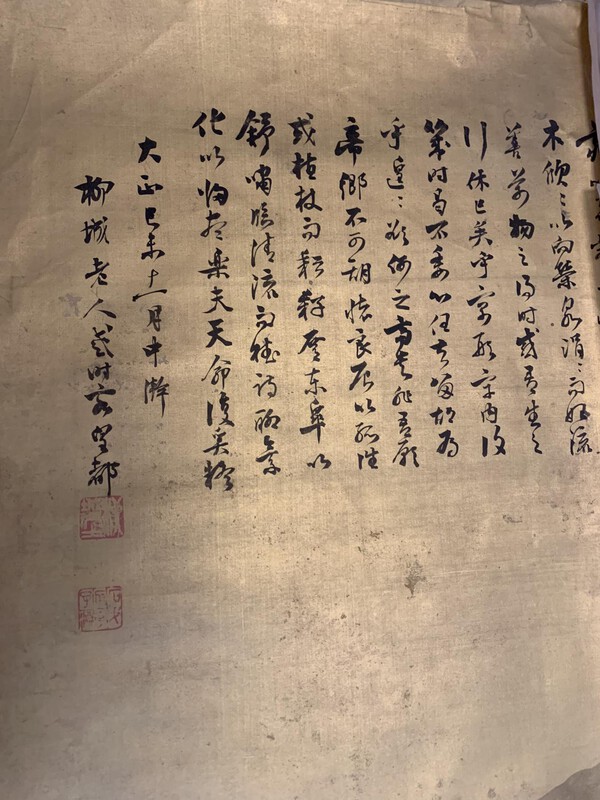 木欣〻以向榮泉涓〻而始流
善萬物之得時感吾生之
行休已矣乎寓形宇内復
幾時曷不委心任去留胡為
乎遑〻欲何之富貴非吾願
帝郷不可期懷良辰以孤往
或植杖而耘耔登東皐以
舒嘯臨清流而賦詩聊乘
化以歸盡樂夫天命復奚疑
大正己未十一月中澣
柳城老人時客京都